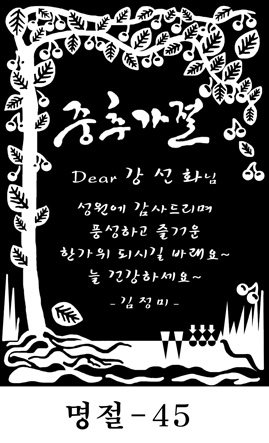 중추가절
Dear 강 선 화님
성원에 감사드리며
풍성하고 즐거운
한가위 되시길 바래요~
늘 건강하세요~
- 김정미 -
명절-45